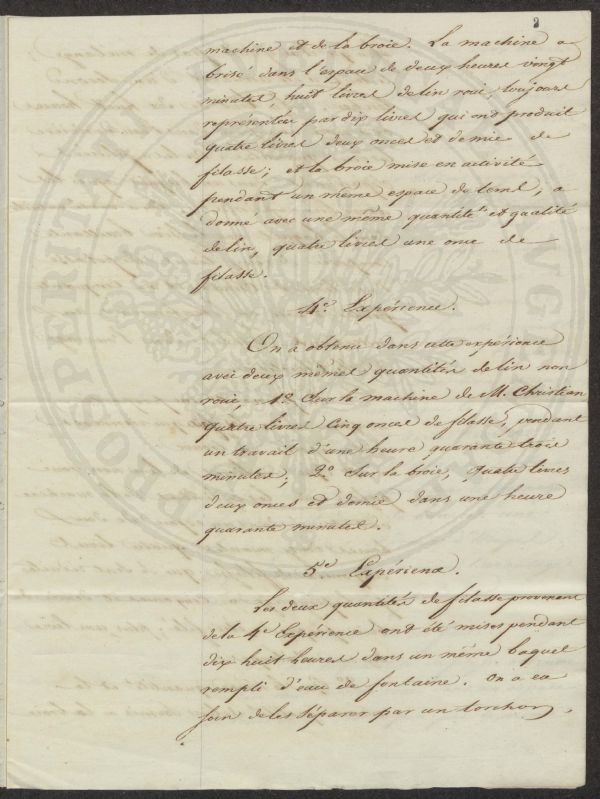 2
machine et de la broie. La machine a
brisé dans l'espace de deux heures vingt
minutes huit livres de lin roui toujours
représentées par dix livres qui ont produit
quatre livres deux onces et demie de
filasse; et la broie mise en activité
pendant un même espace de tems, a
donné avec une même quantité et qualité
de lin, quatre livres une once de
filasse.
4e. Expérience.
On a obtenu dans cette expérience
avec deux mêmes quantités de lin non
roui, 1o. Sur la machine de M. Christian
quatre livres cinq onces de filasse, pendant
un travail d'une heure quarante trois
minutes; 2o. Sur la broie, quatre livres
deux onces et demie dans une heure
quarante minutes.
5e Expérience.
Les deux quantités de filasse provenant
de la 4e Expérience ont été mises pendant
dix huit heures dans un même baquet
rempli d'eau de fontaine. On a eu
soin de les séparer par un torchon,